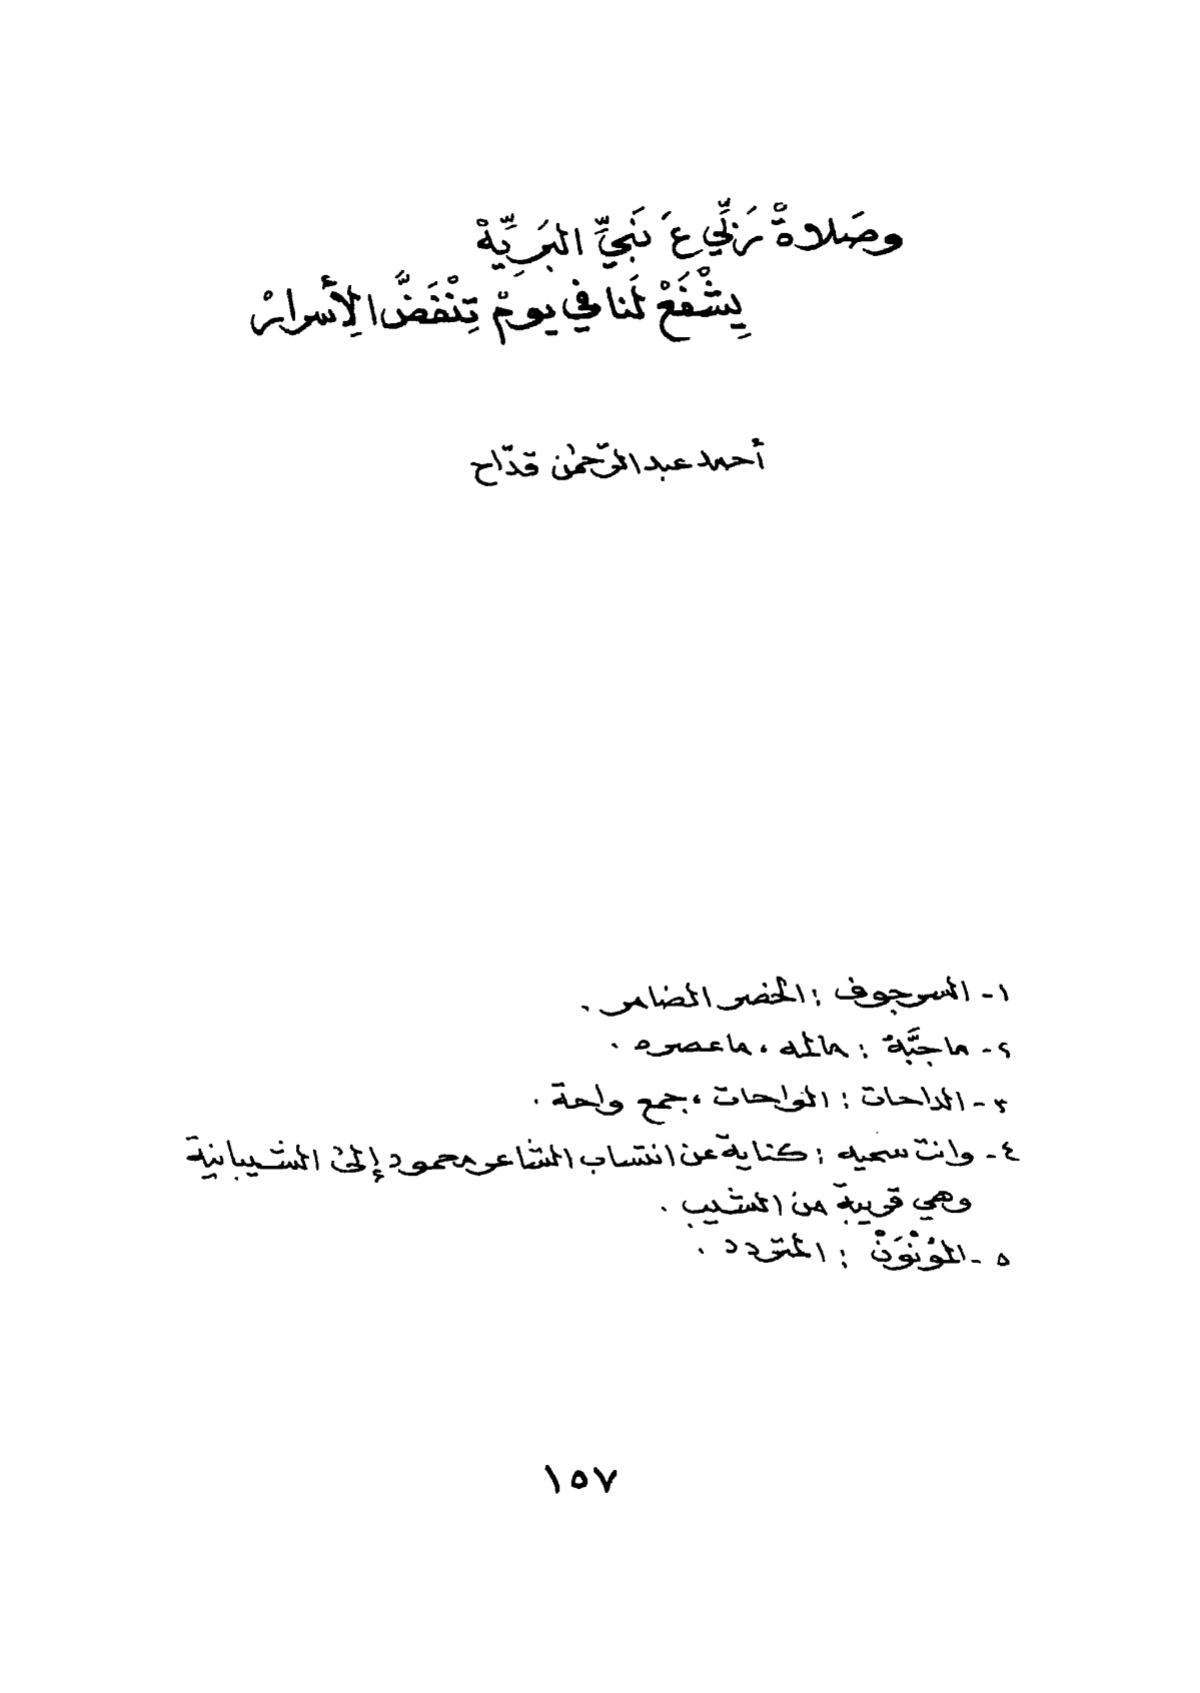 وصَلاةْ رَبِّي عَ نَبِيِّ البَرِيِّهْ
يِشْفَعْ لَنا في يومْ تِنْفَضَّ الِأسرارْ
أحمد عبدالرّحمٰن قدّاح
١- السرجوف : الخصر الضامر .
٢- ماجبَّهْ : مالمه ، ماعصره .
٣- الداحات : الواحات ، جمع واحة .
٤- وانت سميه : كناية عن انتساب الشاعر محمود إلى الشيبانية
وهي قريبة من الشيب .
٥- المُؤنْوَنْ : المتردد .
١٥٧